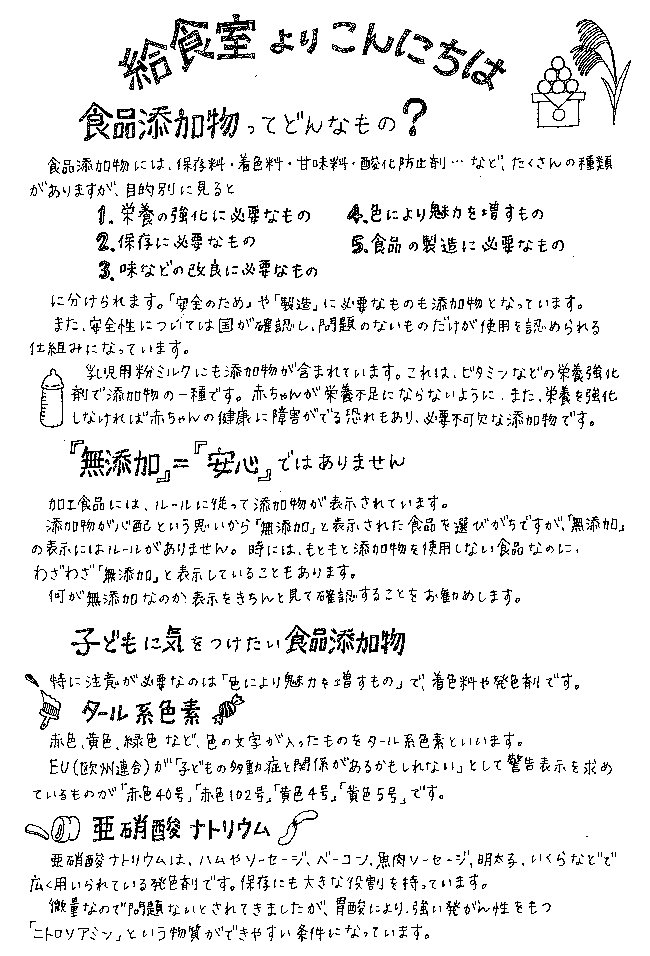 給食室よりこんにちは
食品添加物ってどんなもの？
食品添加物には、保存料・着色料・甘味料・酸化防止剤…など、たくさんの種類
がありますが、目的別に見ると
1. 栄養の強化に必要なもの
2. 保存に必要なもの
3. 味などの改良に必要なもの
4. 色により魅力を増すもの
5. 食品の製造に必要なもの
に分けられます。「安全のため」や「製造」に必要なものも添加物となっています。
また、安全性については国が確認し、問題のないものだけが使用を認められる
仕組みになっています。
乳児用粉ミルクにも添加物が含まれています。これは、ビタミンなどの栄養強化
剤で添加物の一種です。赤ちゃんが栄養不足にならないように、また、栄養を強化
しなければ赤ちゃんの健康に障害がでる恐れもあり、必要不可欠な添加物です。
『無添加』=『安心』ではありません
加工食品には、ルールに従って添加物が表示されています。
添加物が心配という思いから「無添加」と表示された食品を選びがちですが、「無添加」
の表示にはルールがありません。時には、もともと添加物を使用しない食品なのに、
わざわざ「無添加」と表示していることもあります。
何が無添加なのか表示をきちんと見て確認することをお勧めします。
子どもに気をつけたい食品添加物
特に注意が必要なのは「色により魅力を増すもの」で、着色料や発色剤です。
タール系色素
赤色、黄色、緑色など、色の文字が入ったものをタール系色素といいます。
EU(欧州連合)が「子どもの多動症と関係があるかもしれない」として警告表示を求め
ているものが「赤色40号」「赤色102号」「黄色4号」「黄色5号」です。
亜硝酸ナトリウム
亜硝酸ナトリウムは、ハムやソーセージ、ベーコン、魚肉ソーセージ、明太子、いくらなどで
広く用いられている発色剤です。保存にも大きな役割を持っています。
微量なので問題ないとされてきましたが、胃酸により、強い発がん性をもつ
「ニトロソアミン」という物質ができやすい条件になっています。